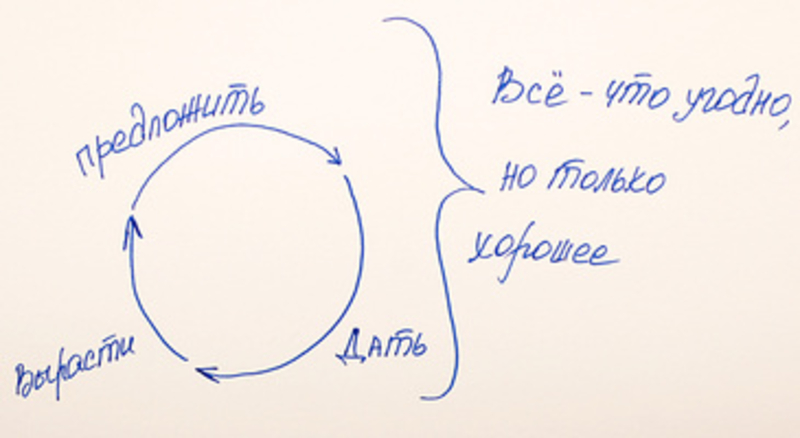 предложить
Дать
Вырасти
Всё - что угодно,
но только
хорошее